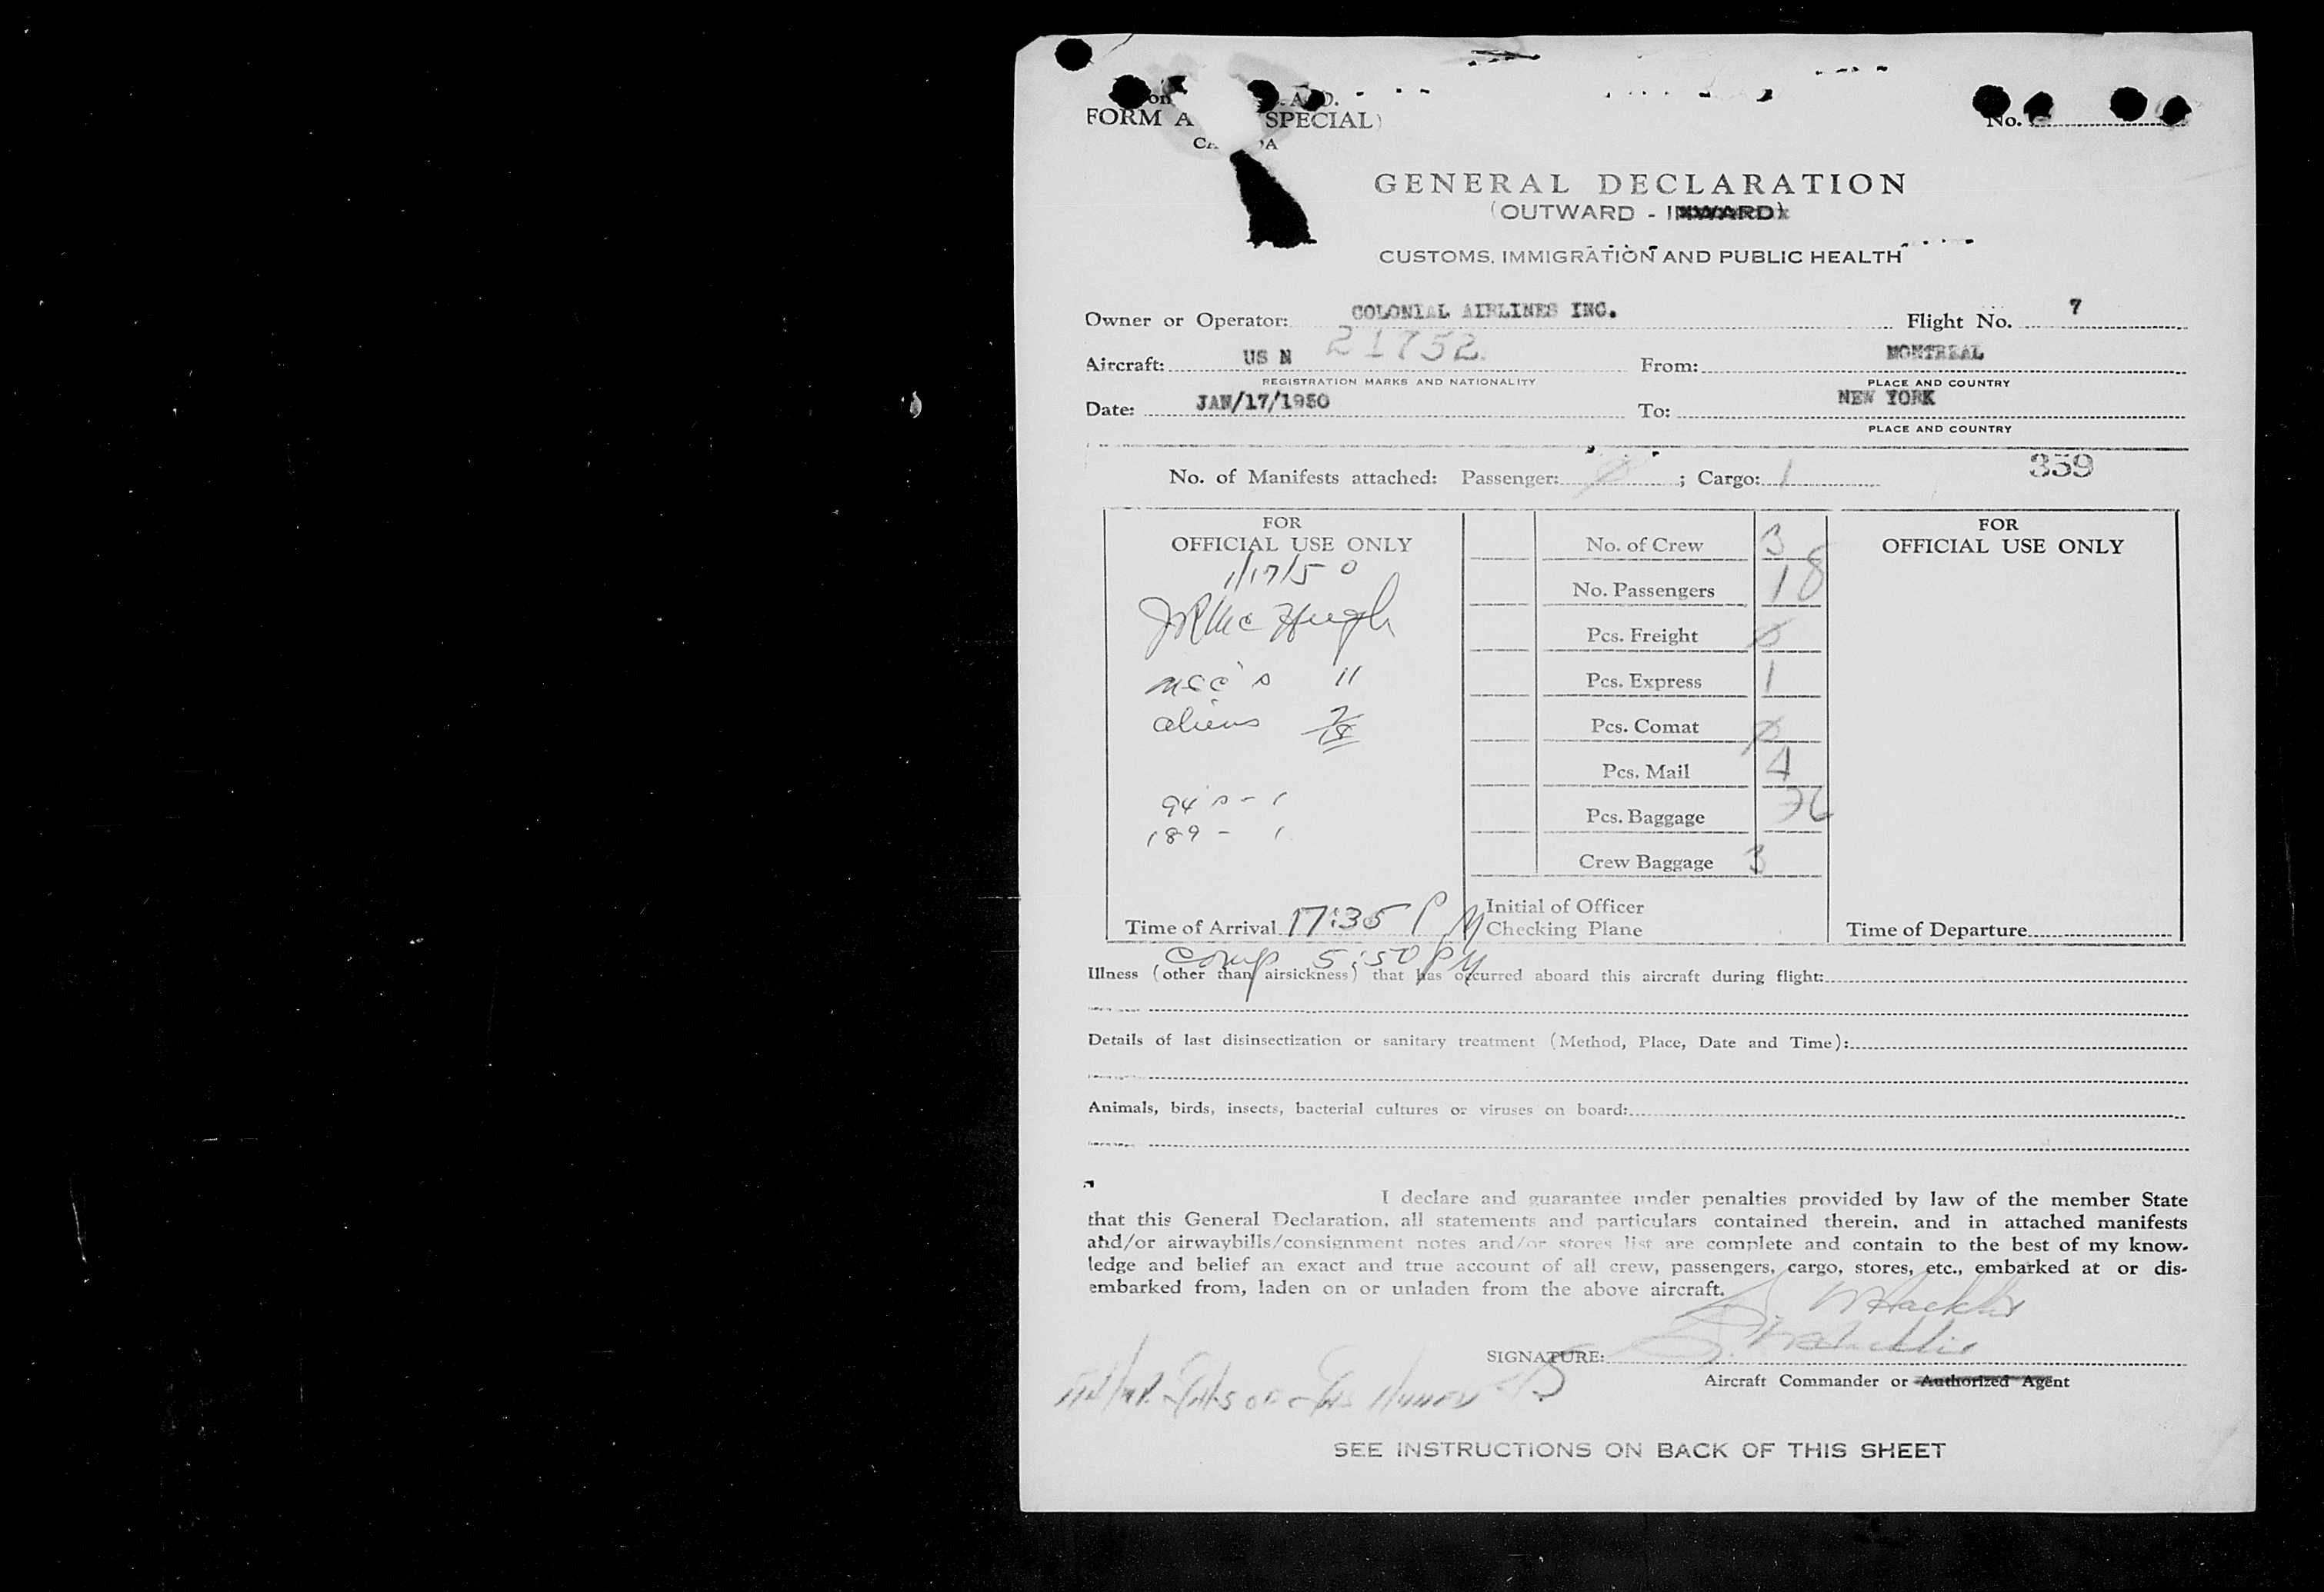 FORM A SPECIAL)
No.
GENERAL DECLARATION
(OUTWARD - INWARD)
CUSTOMS, IMMIGRATION AND PUBLIC HEALTH
Owner or Operator: COLONIAL AIRLINES INC. Flight No. 7
Aircraft: US N 21752 From: MONTREAL
REGISTRATION MARKS AND NATIONALITY PLACE AND COUNTRY
Date: JAN/17/1950 To: NEW YORK
PLACE AND COUNTRY
No. of Manifests attached: Passenger: ; Cargo: 1 359
FOR
OFFICIAL USE ONLY
1/17/50
JRMcHugh
11
aliens 7
18
94's - 1
189 - 1
Time of Arrival 17:35 PM
Comp 5:50 PM
No. of Crew 3
No. Passengers 18
Pcs. Freight 0
Pcs. Express 1
Pcs. Comat 0
Pcs. Mail 4
Pcs. Baggage
Crew Baggage 3
Initial of Officer
Checking Plane
FOR
OFFICIAL USE ONLY
Time of Departure
Illness (other than airsickness) that has occurred aboard this aircraft during flight:
Details of last disinsectization or sanitary treatment (Method, Place, Date and Time):
Animals, birds, insects, bacterial cultures or viruses on board:
I declare and guarantee under penalties provided by law of the member State
that this General Declaration, all statements and particulars contained therein, and in attached manifests
and/or airwaybills/consignment notes and/or stores list are complete and contain to the best of my know-
ledge and belief an exact and true account of all crew, passengers, cargo, stores, etc., embarked at or dis-
embarked from, laden on or unladen from the above aircraft.
SIGNATURE:
Aircraft Commander or Authorized Agent
SEE INSTRUCTIONS ON BACK OF THIS SHEET